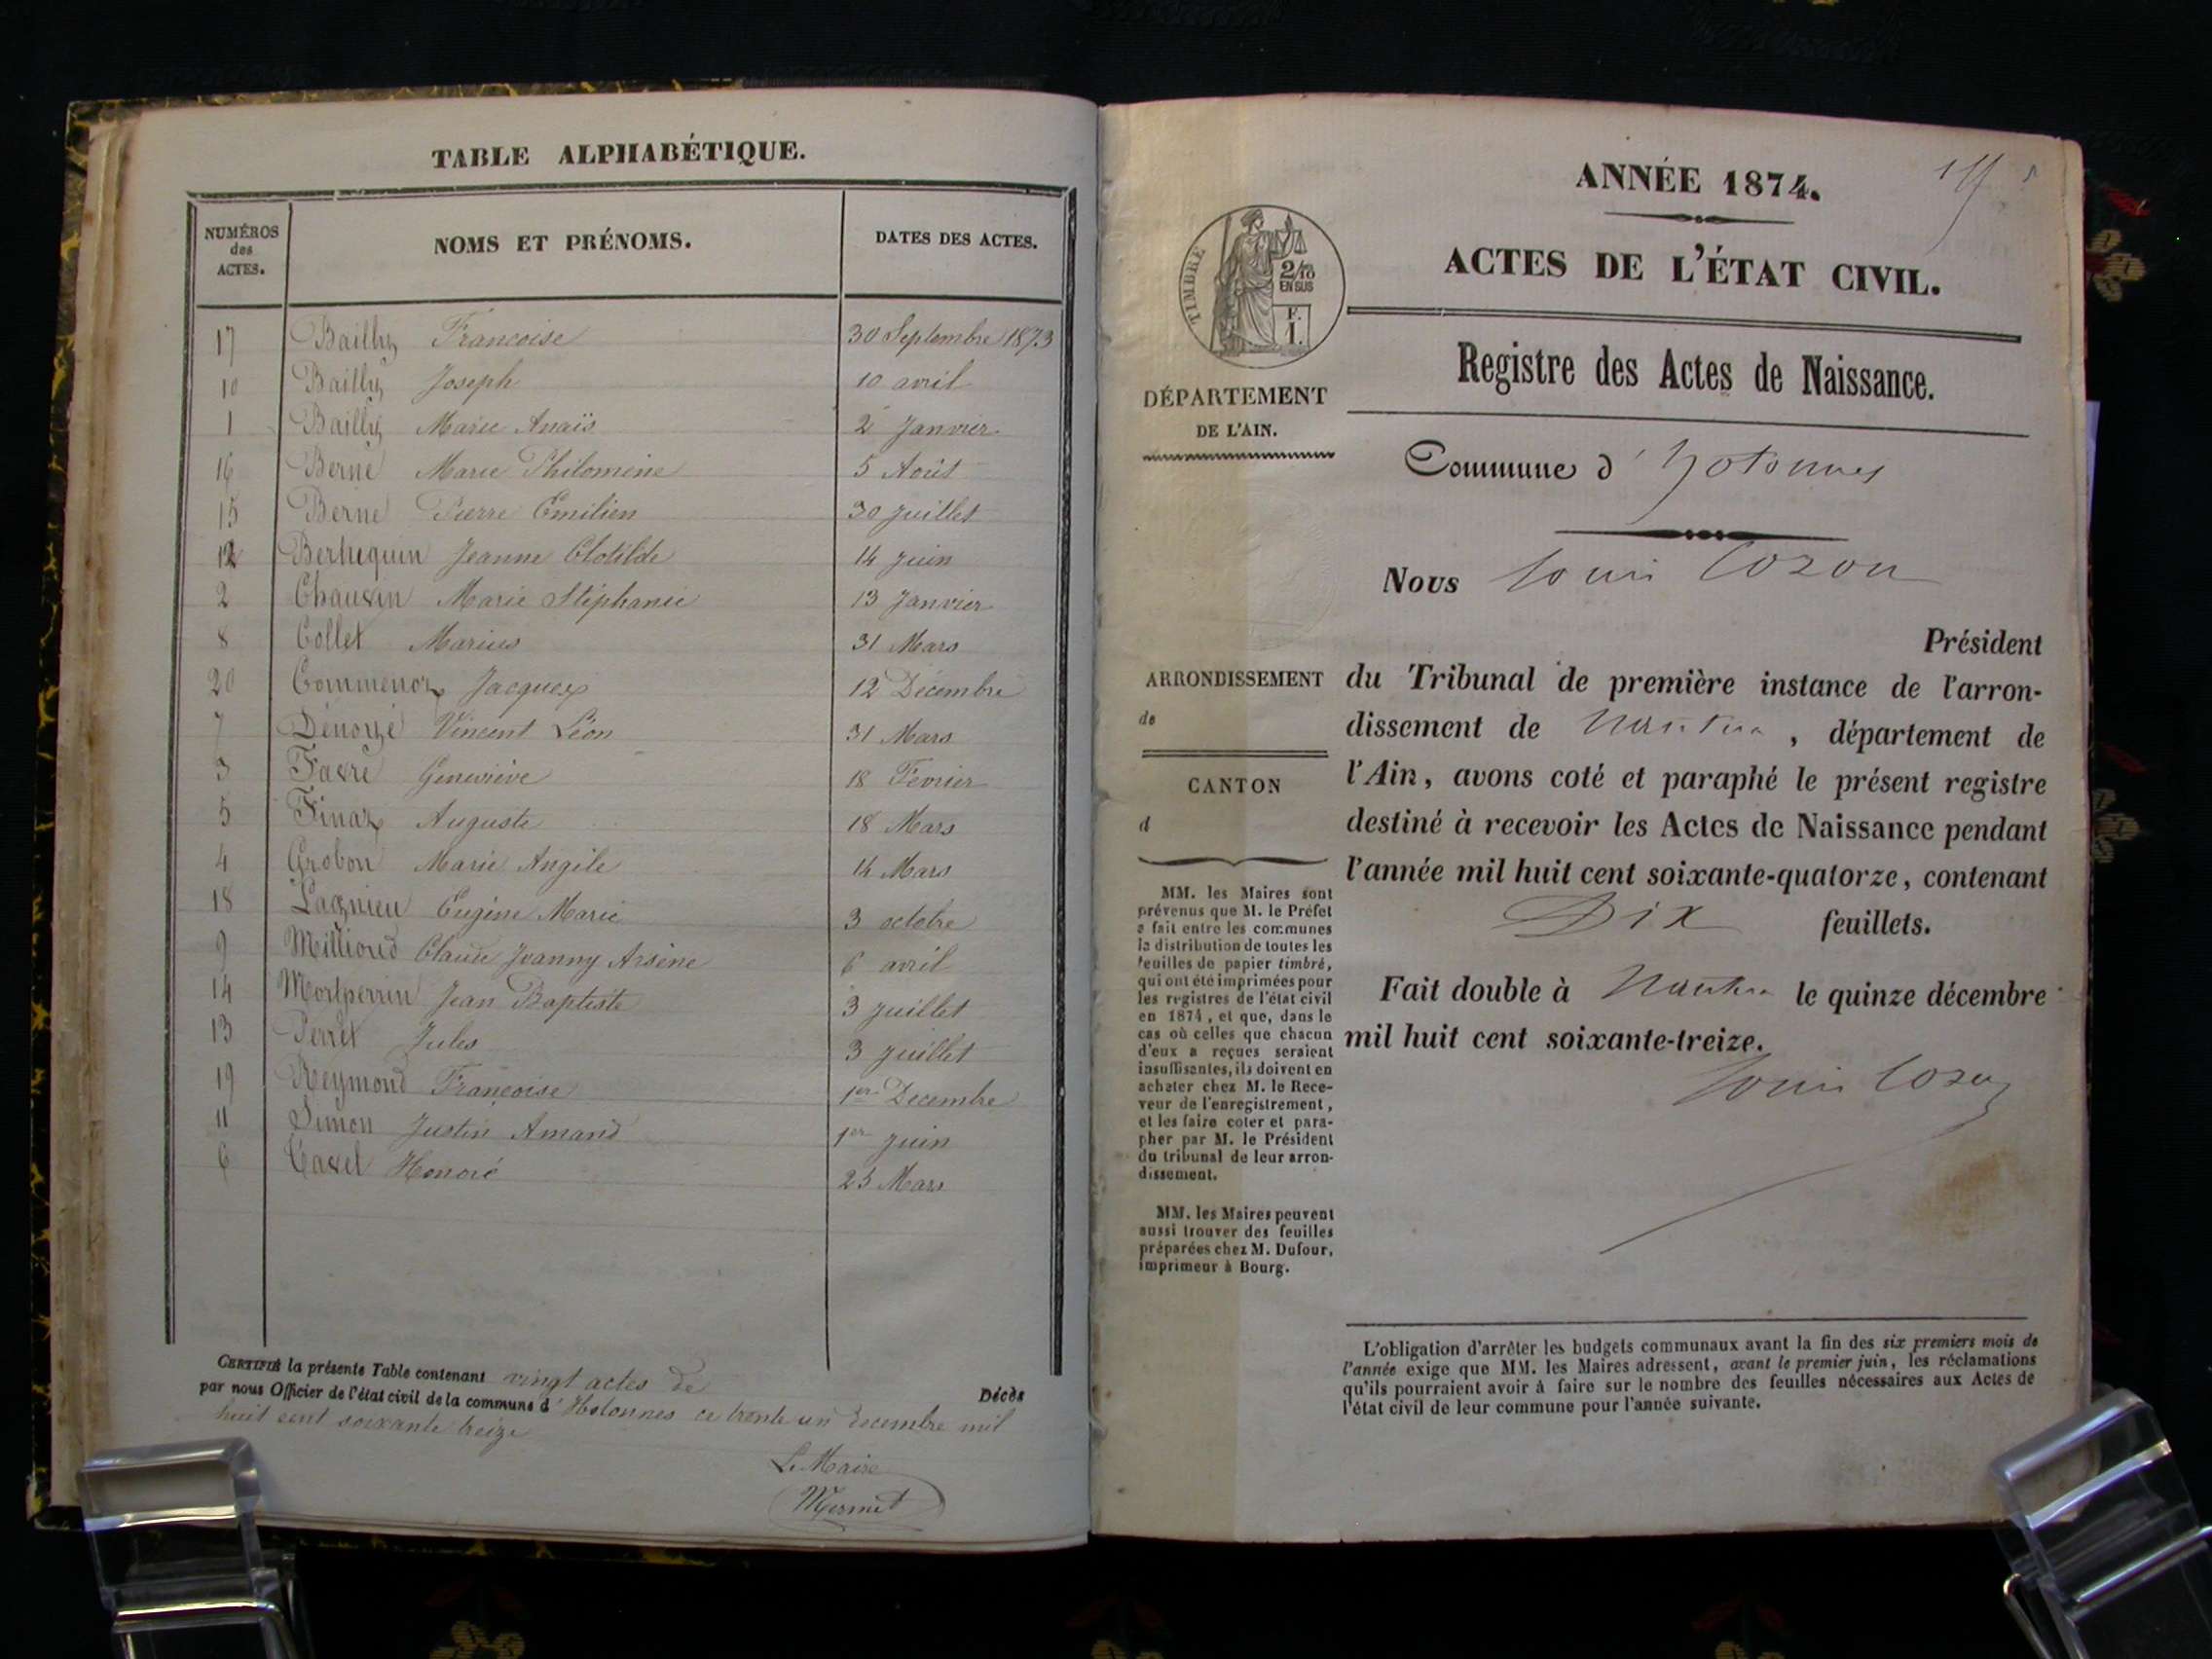 TABLE ALPHABÉTIQUE.
NUMÉROS des ACTES. NOMS ET PRÉNOMS. DATES DES ACTES.
17 Bailly Francoise 30 Septembre 1873
10 Bailly Joseph 10 avril
1 Bailly Marie Anaïs 2 Janvier
16 Berne Marie Philomène 5 Août
15 Berne Pierre Emilien 30 Juillet
12 Berthequin Jeanne Clotilde 14 Juin
2 Chauvin Marie Stéphanie 13 Janvier
8 Collet Marius 31 Mars
20 Commenoz Jacques 12 Décembre
7 Vincent Léon 31 Mars
3 Favre Geneviève 18 Février
5 Finaz Auguste 18 Mars
4 Grobon Marie Angèle 14 Mars
18 Lagnieu Eugène Marie 3 octobre
9 Milliored Claude Joanny Arsène 6 avril
14 Montperrin Jean Baptiste 3 Juillet
13 Perret Jules 3 Juillet
19 Reymond Françoise 1er Decembre
11 Simon Justin Amand 1er Juin
6 Tavel Honoré 25 Mars
CERTIFIÉ la présente Table contenant vingt actes de Décès
par nous Officier de l'état civil de la commune d'Hotonnes ce trente un decembre mil
huit cent soixante treize
Le Maire
Mermet
ANNÉE 1874.
ACTES DE L'ÉTAT CIVIL.
TIMBRE
2/10
EN SUS
F.
1.
Registre des Actes de Naissance.
DÉPARTEMENT
DE L'AIN.
Commune d'hotonnes
Nous Louis Cozon
Président
ARRONDISSEMENT
de
CANTON
d
du Tribunal de première instance de l'arron-
dissement de Nantua, département de
l'Ain, avons coté et paraphé le présent registre
destiné à recevoir les Actes de Naissance pendant
l'année mil huit cent soixante-quatorze, contenant
Dix feuillets.
Fait double à Nantua le quinze décembre
mil huit cent soixante-treize.
Louis Cozon
MM. les Maires sont
prévenus que M. le Préfet
a fait entre les communes
la distribution de toutes les
feuilles de papier timbré,
qui ont été imprimées pour
les registres de l'état civil
en 1874, et que, dans le
cas où celles que chacun
d'eux a reçues seraient
insuffisantes, ils doivent en
acheter chez M. le Rece-
veur de l'enregistrement,
et les faire coter et para-
pher par M. le Président
du tribunal de leur arron-
dissement.
MM. les Maires peuvent
aussi trouver des feuilles
préparées chez M. Dufour,
imprimeur à Bourg.
L'obligation d'arrêter les budgets communaux avant la fin des six premiers mois de
l'année exige que MM. les Maires adressent, avant le premier juin, les réclamations
qu'ils pourraient avoir à faire sur le nombre des feuilles nécessaires aux Actes de
l'état civil de leur commune pour l'année suivante.